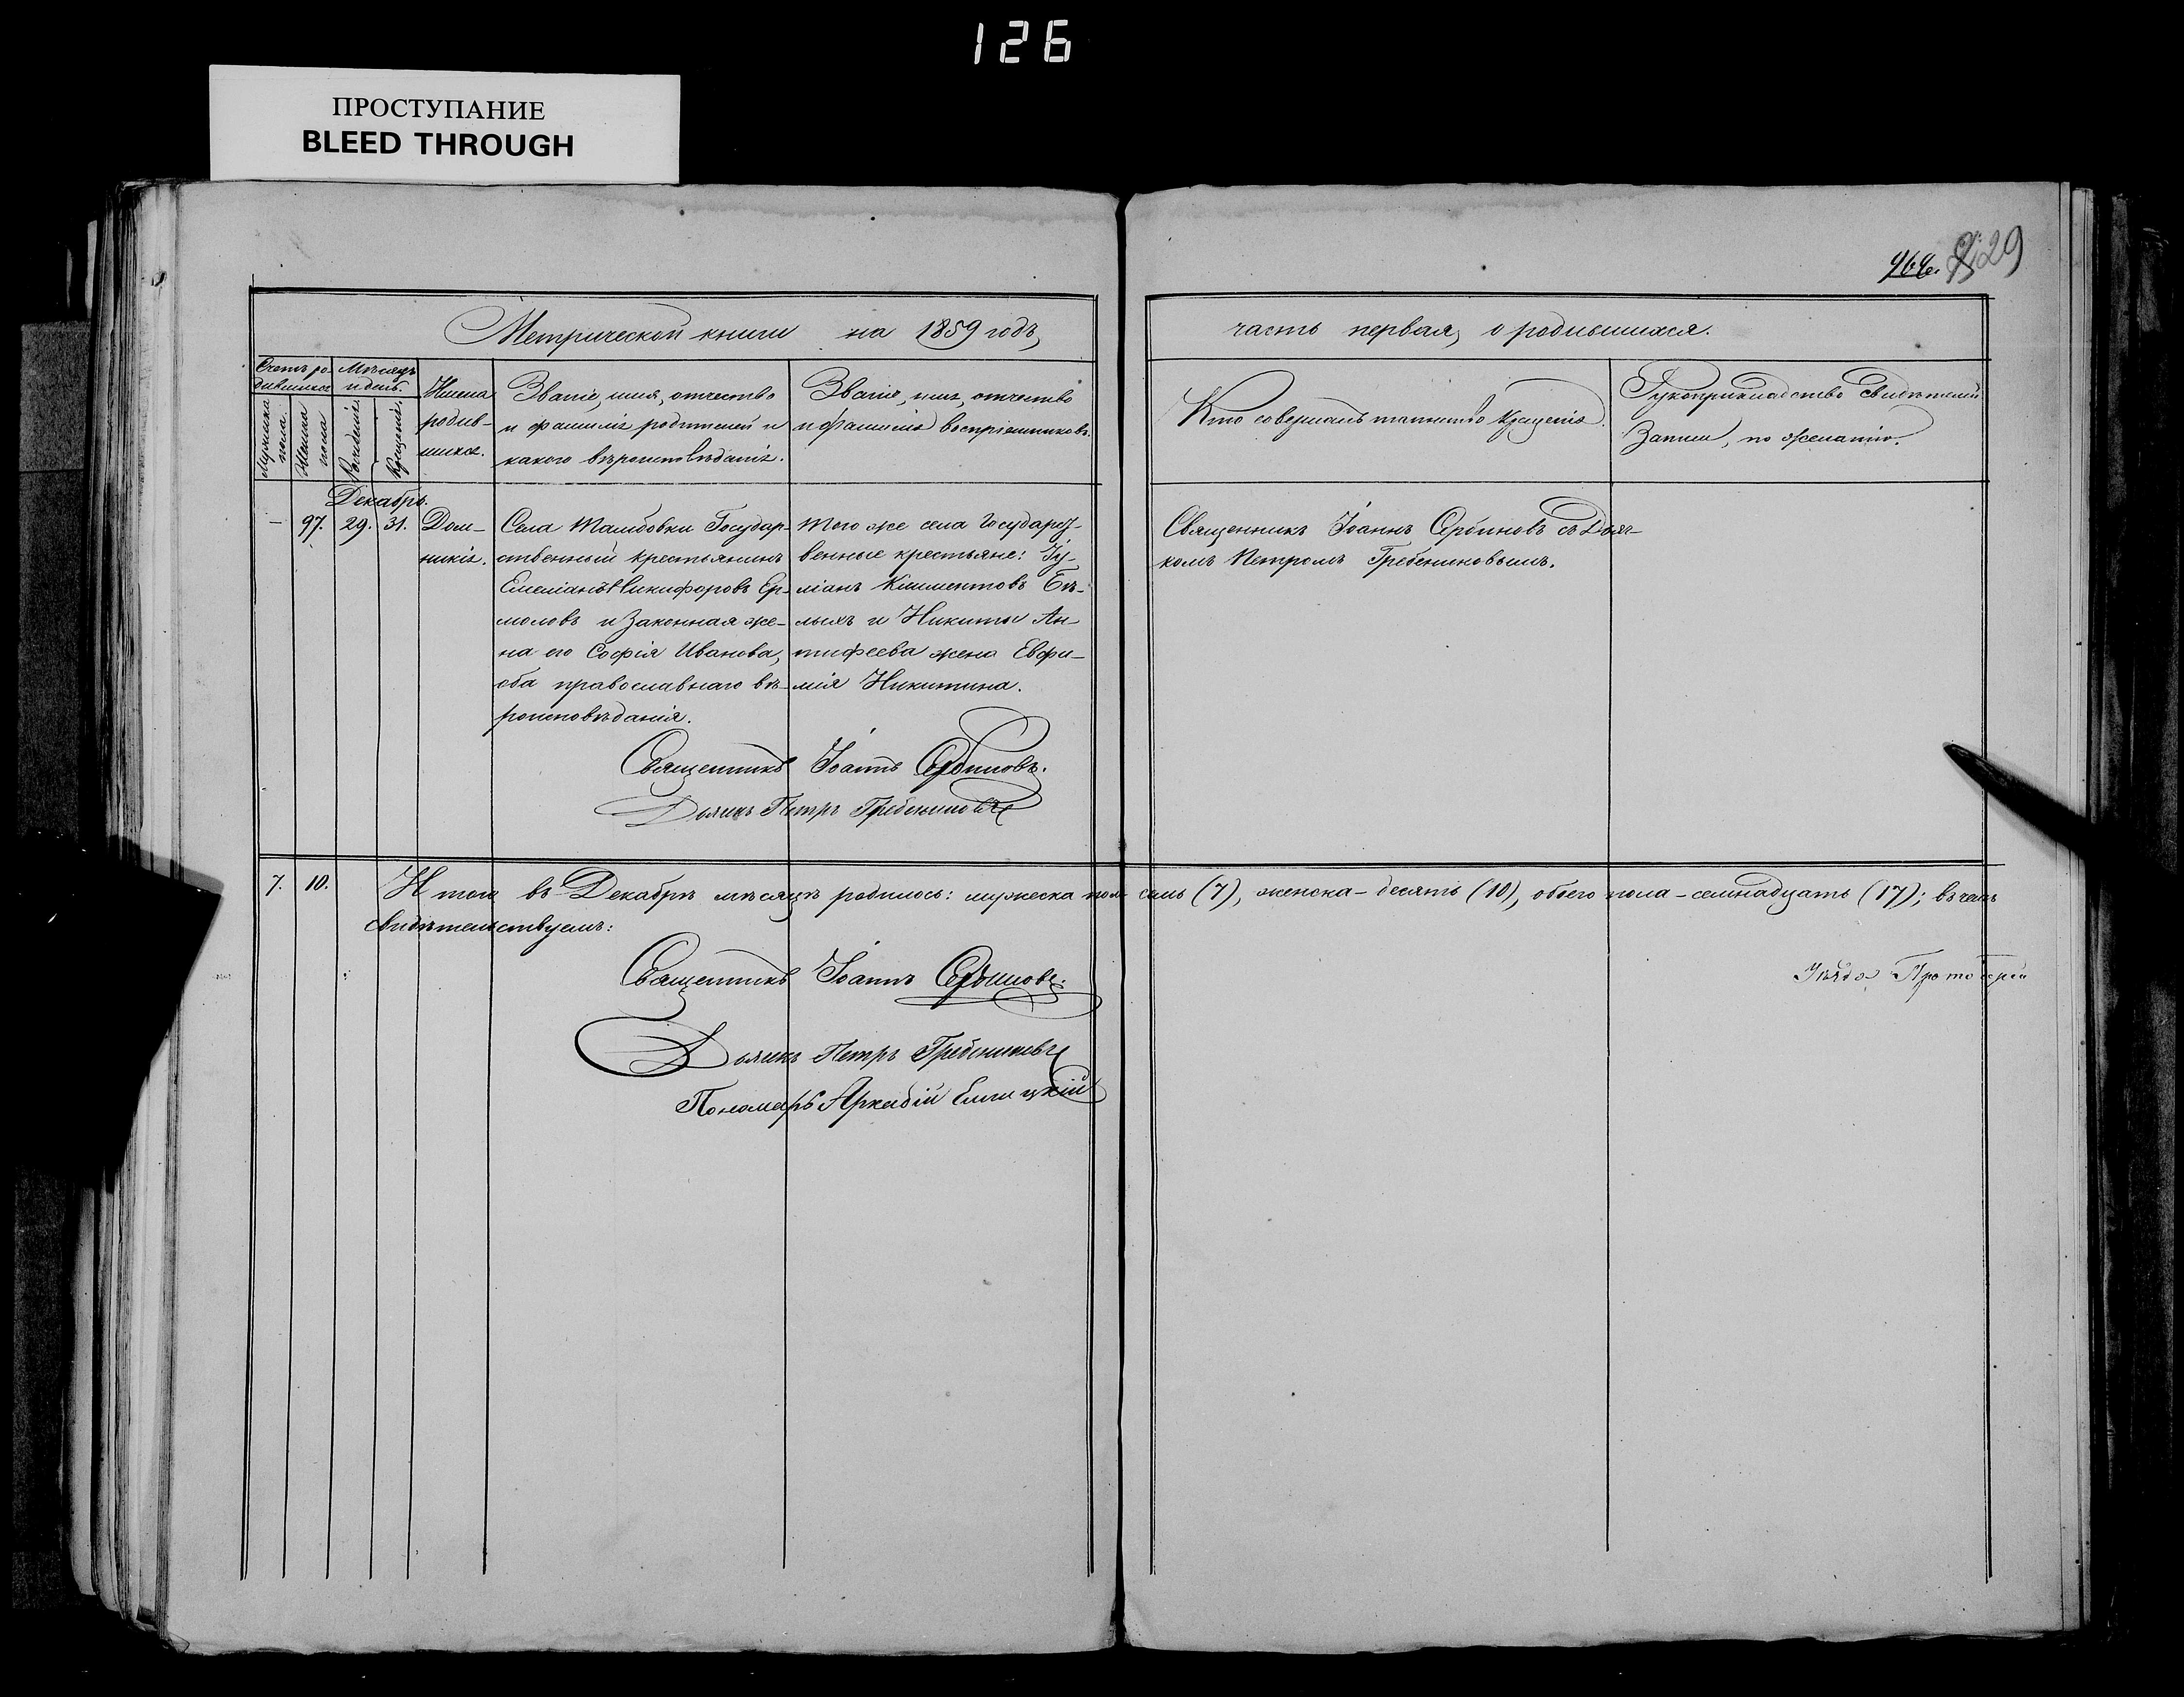 126
ПРОСТУПАНИЕ
BLEED THROUGH
29
Метрической книги на 1859 годъ,
часть первая, о родившихся.
Счетъ ро-
дившихся
Мужеска
пола.
Женска
пола
Мѣсяцъ
и день.
Рожденія.
Крещенія.
Имена
родив-
шихся.
Званіе, имя, отчество
и фамилія родителей и
какого вѣроисповѣданія.
Званіе, имя, отчество
и фамилія воспріемниковъ.
Кто совершалъ таинство крещенія.
Рукоприкладство свидѣтелей
записи, по желанію.
Декабрь.
– 97. 29. 31.
Дом-
никія.
Села Тамбовки Государ-
ственный крестьянинъ
Емеліанъ Никифоровъ Ер-
моловъ и законная же-
на его Софія Иванова,
оба православнаго вѣ-
роисповѣданія.
Того же села Государст-
венные крестьяне: Іу-
ліанъ Климентовъ Бѣ-
лыхъ и Никиты Ан-
тифеева жена Евфи-
мія Никитина.
Священникъ Іоаннъ Сербиновъ съ Дьяч-
комъ Петромъ Гребенниковымъ.
Священникъ Іоаннъ Сербиновъ.
Дьячекъ Петръ Гребенниковъ
7. 10. Итого въ Декабрѣ мѣсяцѣ родилось: мужеска пола семь (7), женска – десять (10), обоего пола – семнадцать (17); въ чемъ
свидѣтельствуемъ:
Священникъ Іоаннъ Сербиновъ.
Дьячекъ Петръ Гребенниковъ
Пономарь Аркадій
Уѣзда Протоіерей